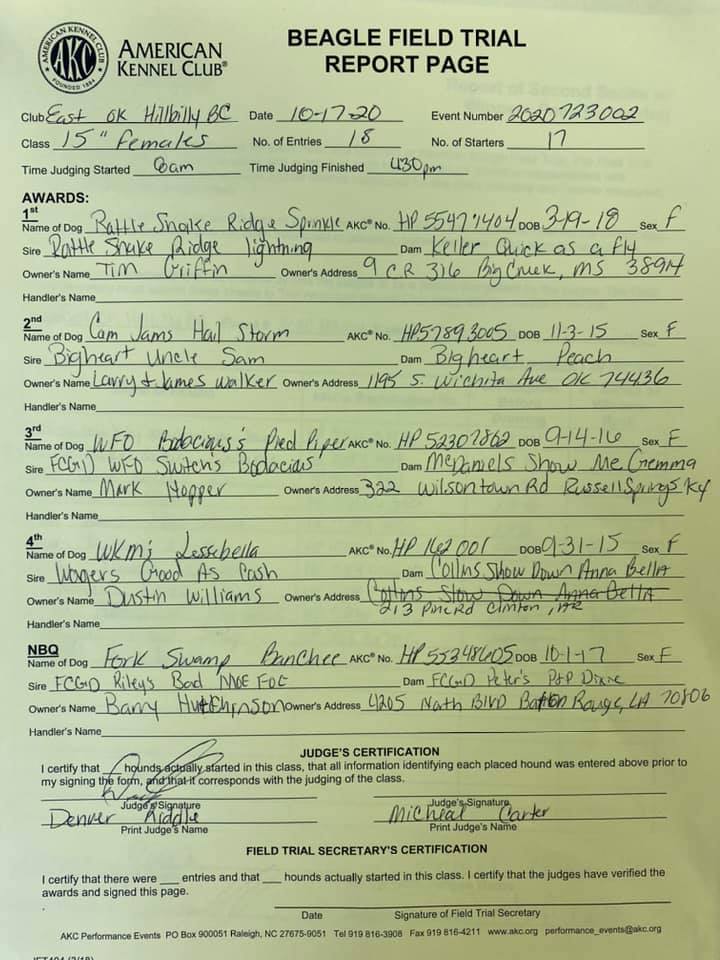 AMERICAN KENNEL CLUB
AKC
FOUNDED 1884
AMERICAN
KENNEL CLUB®
BEAGLE FIELD TRIAL
REPORT PAGE
Club East OK Hillbilly BC Date 10-17-20 Event Number 2020723002
Class 15" Females No. of Entries 18 No. of Starters 17
Time Judging Started 8am Time Judging Finished 430pm
AWARDS:
1st
Name of Dog Rattle Snake Ridge Sprinkle AKC® No. HP55471404 DOB 3-19-18 Sex F
Sire Rattle Snake Ridge lightning Dam Keller Quick as a fly
Owner's Name Tim Griffin Owner's Address 9 CR 316 Big Creek, MS 38914
Handler's Name
2nd
Name of Dog Cam Jams Hail Storm AKC® No. HP57893005 DOB 11-3-15 Sex F
Sire Bigheart Uncle Sam Dam Bigheart Peach
Owner's Name Larry & James Walker Owner's Address 1195 S. Wichita Ave OK 74436
Handler's Name
3rd
Name of Dog WFO Bodacious's Pied Piper AKC® No. HP52307862 DOB 9-14-16 Sex F
Sire FCGD WFO Switch's Bodacious' Dam McDaniels Show Me Gemma
Owner's Name Mark Hopper Owner's Address 322 Wilsontown Rd Russell Springs Ky
Handler's Name
4th
Name of Dog WKMJ Lessebella AKC® No. HP 162001 DOB -31-15 Sex F
Sire Wagers Good As Cash Dam Collins Show Down Anna Bella
Owner's Name Dustin Williams Owner's Address Collins Show Down Anna Bella
213 Pine Rd Clinton, AR
Handler's Name
NBQ
Name of Dog Fork Swamp Banchee AKC® No. HP55348605 DOB 10-1-17 Sex F
Sire FCGD Riley's Bad Moe Foe Dam FCGD Peter's P&P Dixie
Owner's Name Barry Hutchinson Owner's Address 4205 Nath Blvd Baton Rouge, LA 70806
Handler's Name
JUDGE'S CERTIFICATION
I certify that ___ hounds actually started in this class, that all information identifying each placed hound was entered above prior to
my signing the form, and that it corresponds with the judging of the class.
Judge's Signature Judge's Signature
Denver Riddle Micheal Carter
Print Judge's Name Print Judge's Name
FIELD TRIAL SECRETARY'S CERTIFICATION
I certify that there were ___ entries and that ___ hounds actually started in this class. I certify that the judges have verified the
awards and signed this page.
Date Signature of Field Trial Secretary
AKC Performance Events PO Box 900051 Raleigh, NC 27675-9051 Tel 919 816-3908 Fax 919 816-4211 www.akc.org performance_events@akc.org